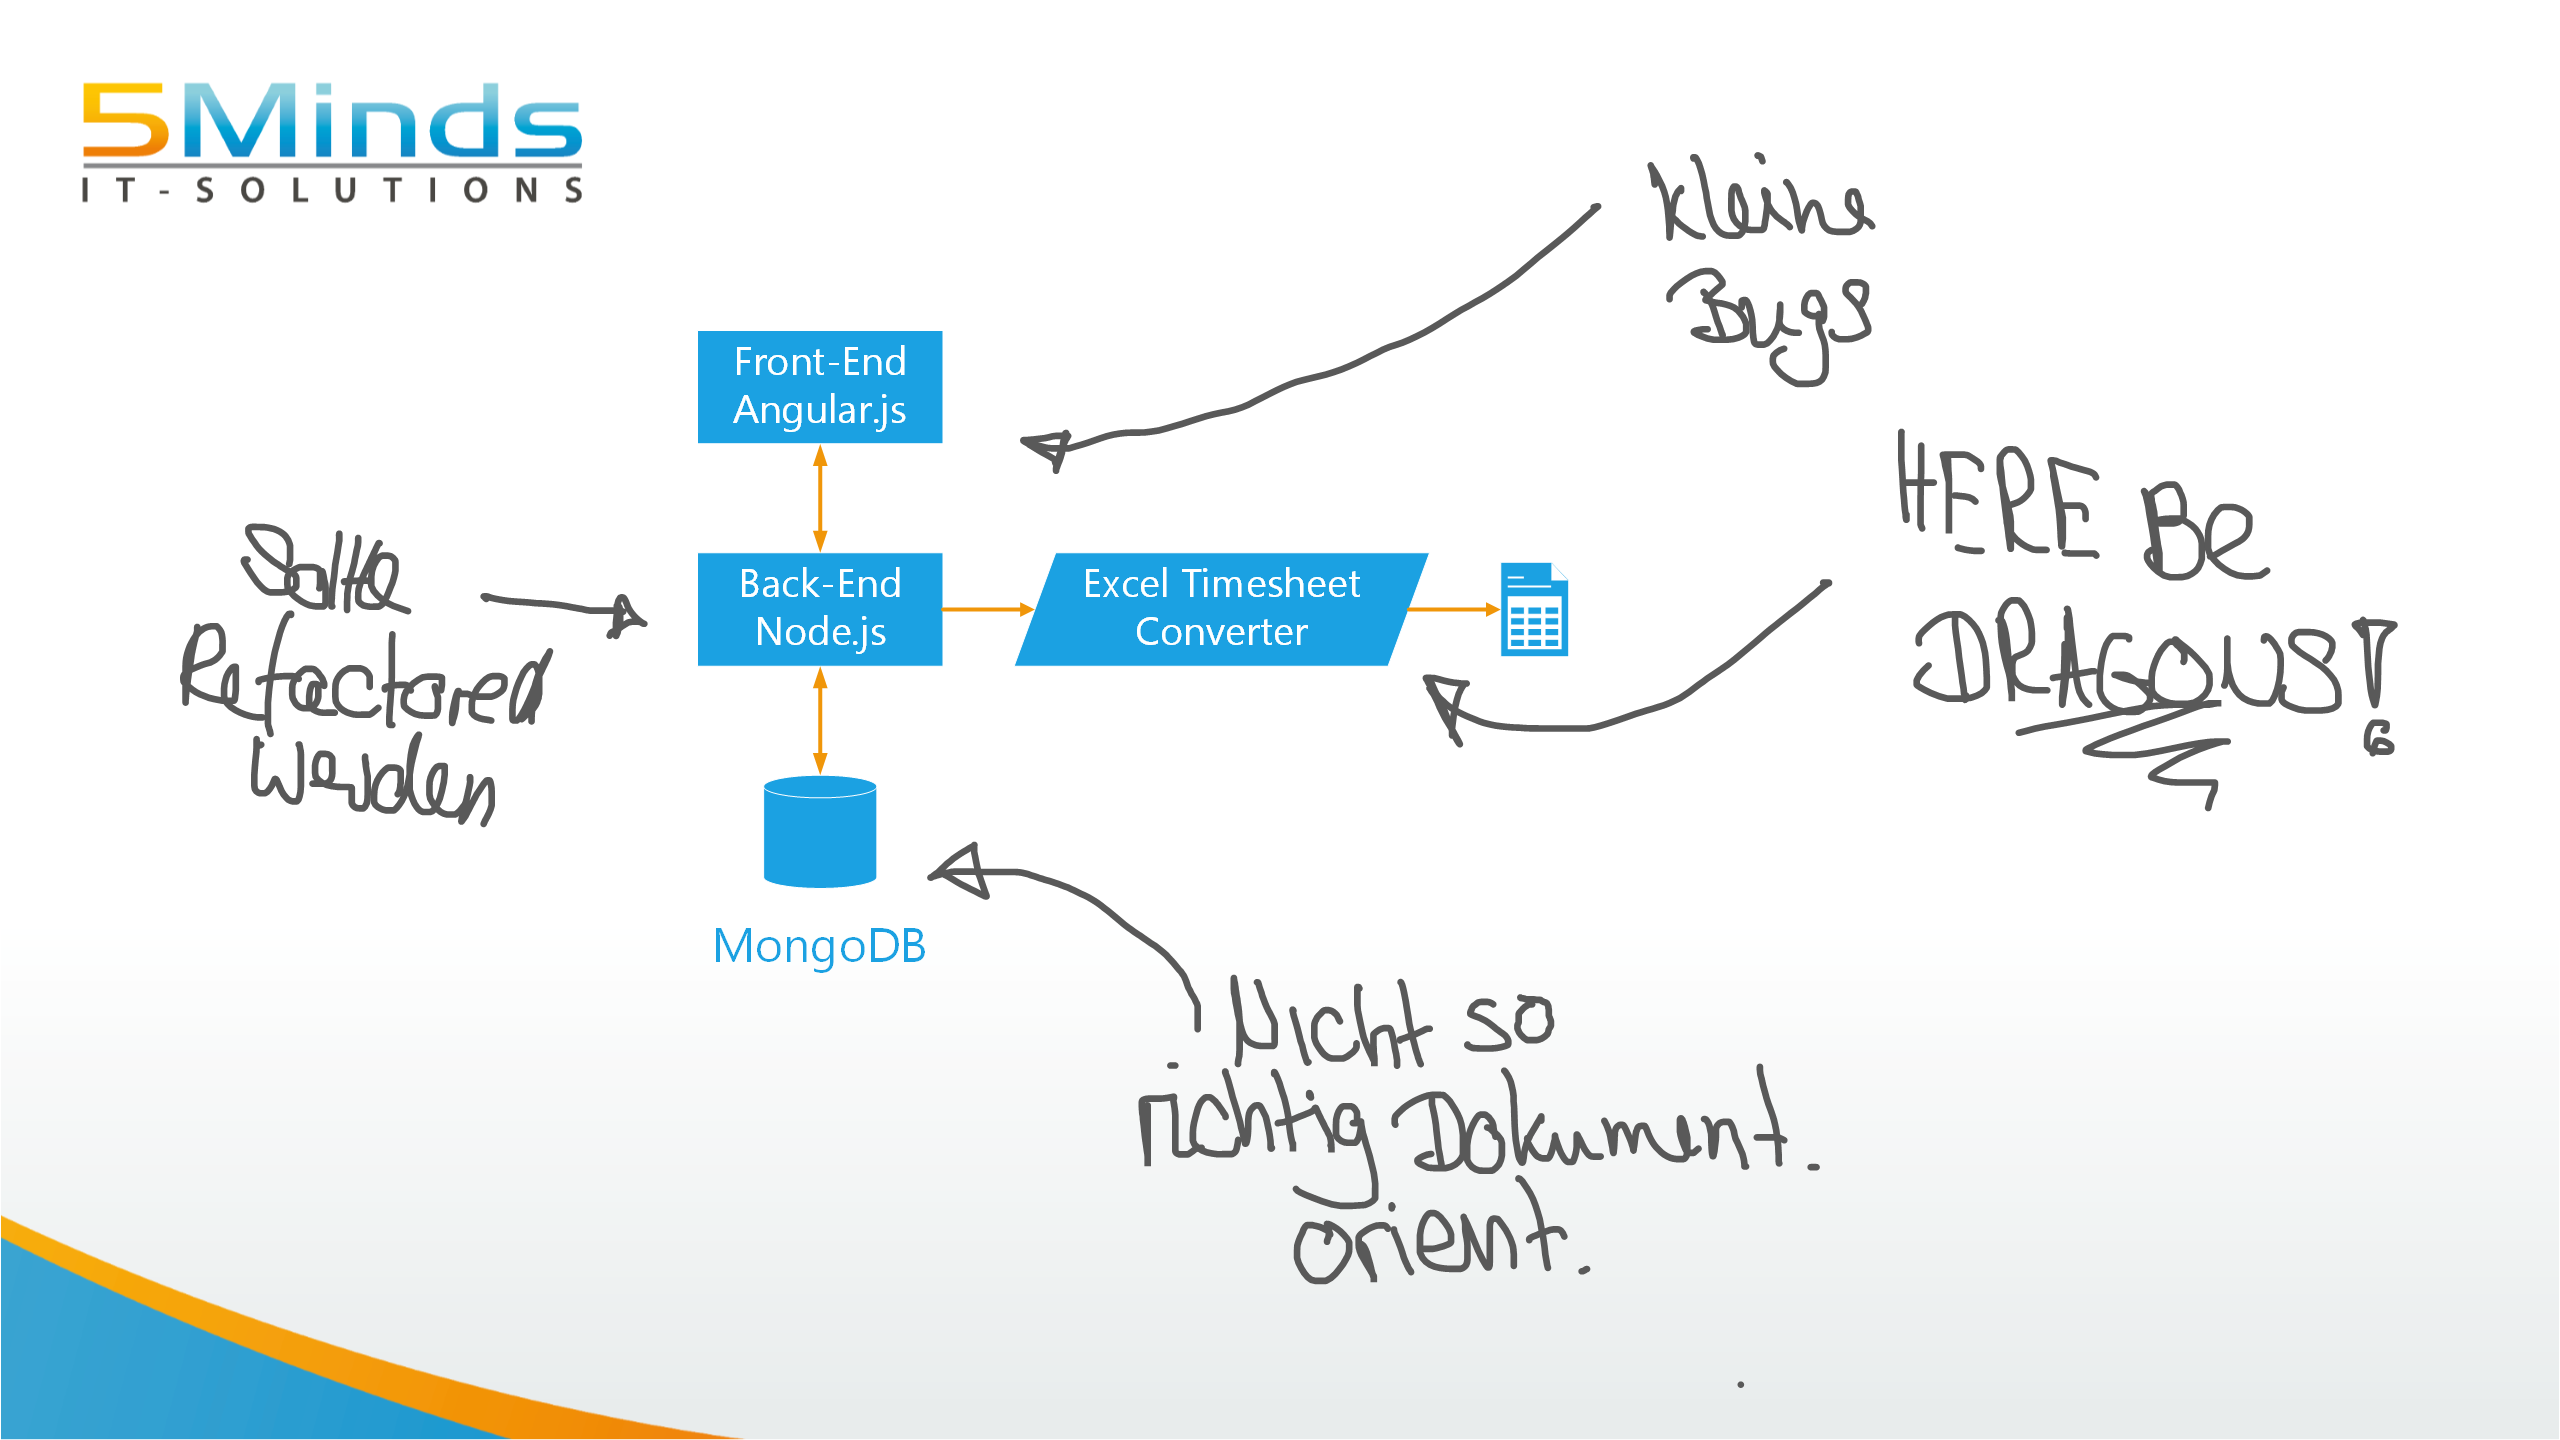 5Minds
IT-SOLUTIONS
Kleine
Bugs
Front-End
Angular.js
HERE Be
DRAGONS!
Sollte
Refactored
werden
Back-End
Node.js
Excel Timesheet
Converter
MongoDB
Nicht so
richtig Dokument.
orient.